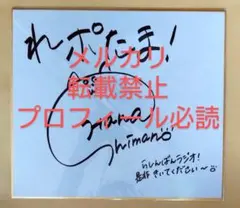 れポたま!
メルカリ
転載禁止
プロフィール必読
Shimano
らしんばんラジオ!
是非きいてくださーい